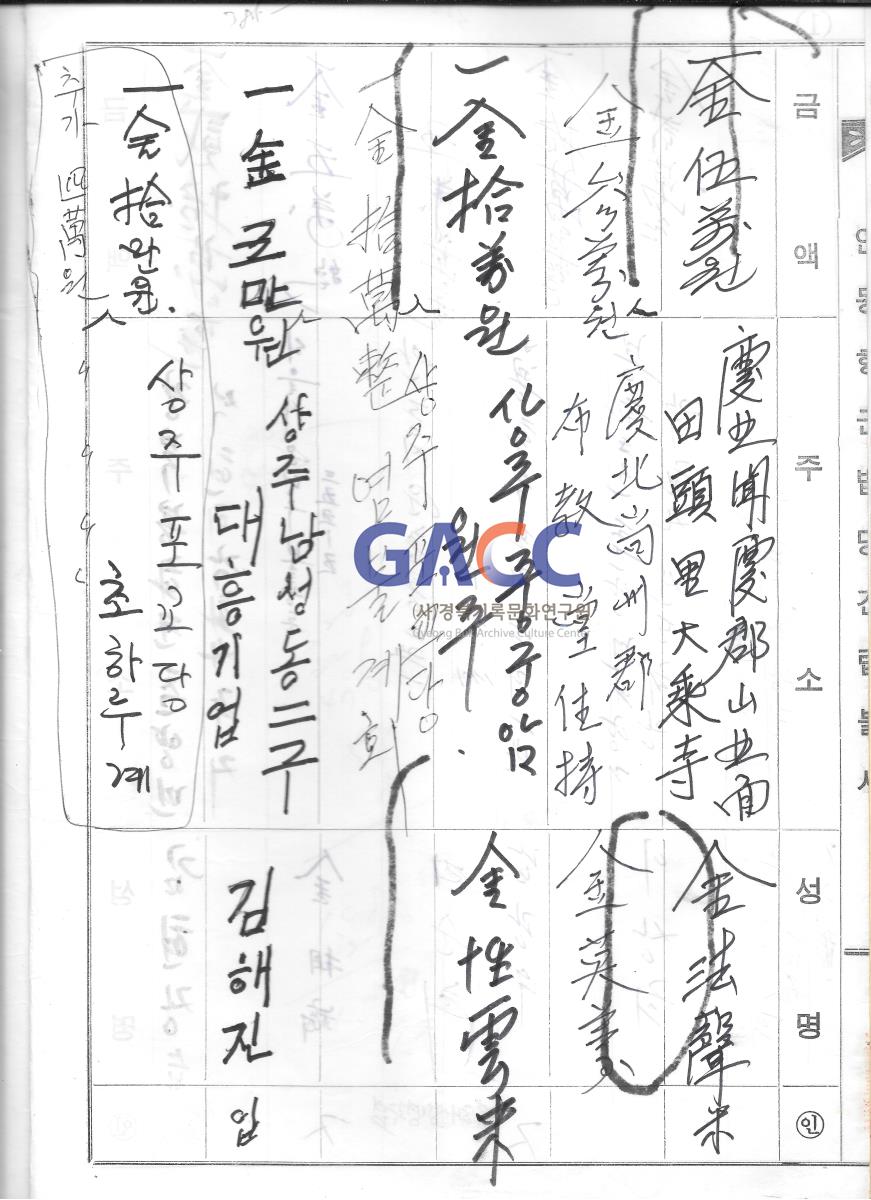 금액
주소
성명
인
一金伍萬원
慶北聞慶郡山北面
田頭里大乘寺
金法聲
一金參萬원
慶北尙州郡
布敎堂住持
金英美
一金拾萬원
상주주중앙
원주
金性雲
一金拾萬整
상주포교당
염불계회
一金 크만원
상주남성동二구
대흥기업
김해진
인
一金拾만원.
상주포교당
초하루계
추가 四萬원
GACC
(사)경북기록문화연구원
Gyeong Buk Archive Culture Center